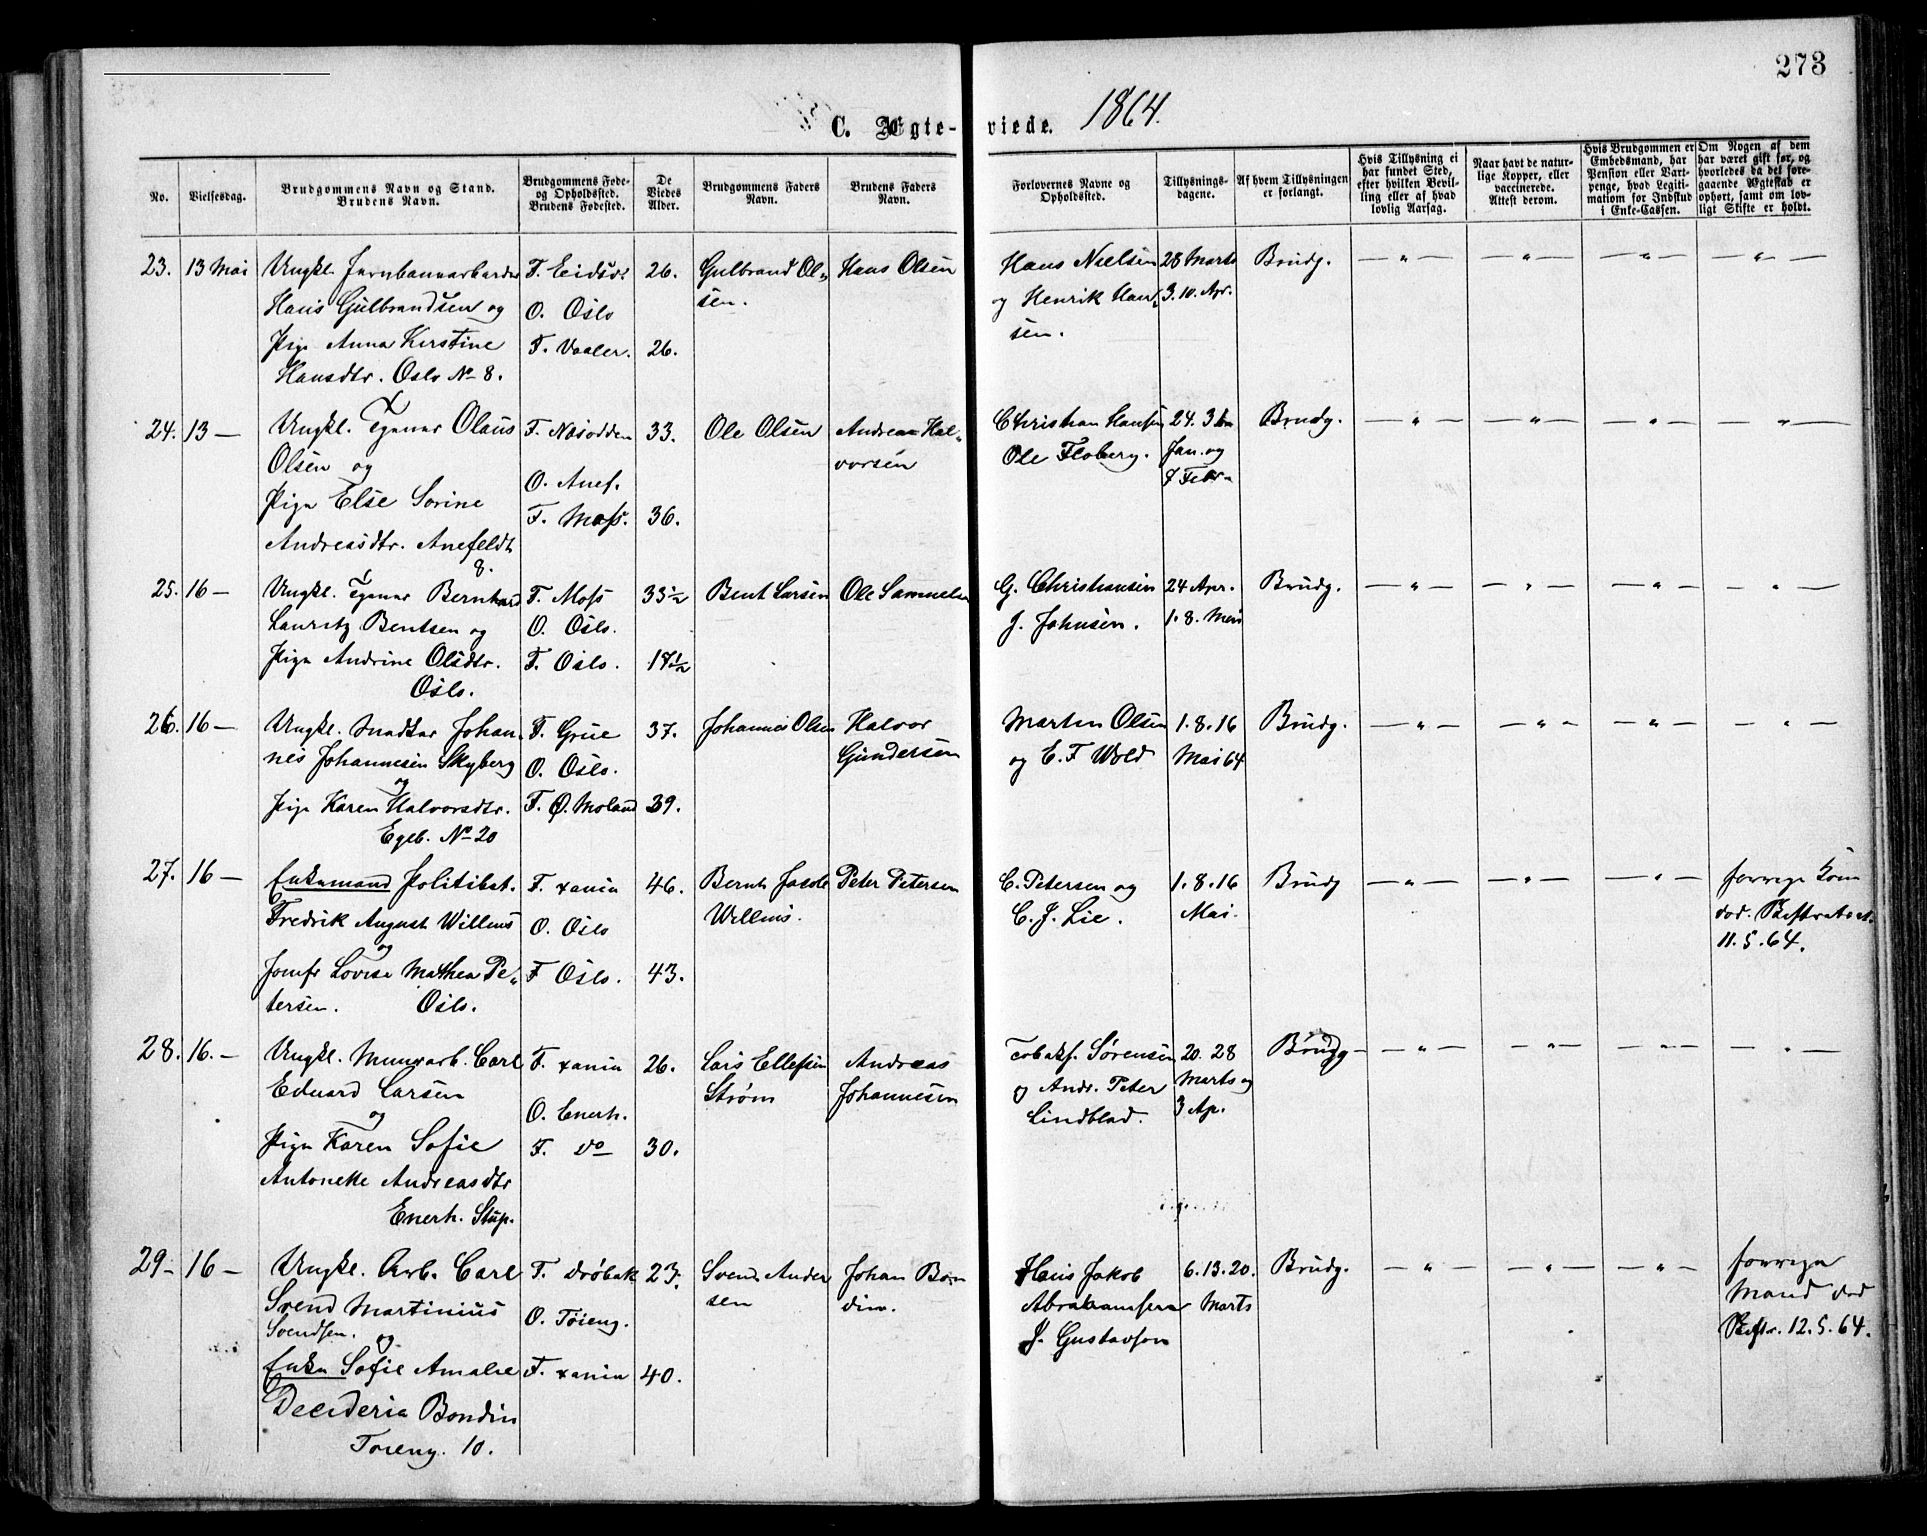 273
C. Ægte-viede. 1864.
No.
Vielsesdag.
Brudgommens Navn og Stand.
Brudens Navn.
Brudgommens Føde-
og Opholdssted.
Brudens Fødested.
De
Viedes
Alder.
Brudgommens Faders
Navn.
Brudens Faders
Navn.
Forlovernes Navne og
Opholdssted.
Tillysnings-
dagene.
Af hvem Tillysningen
er forlangt.
Hvis Tillysning ei
har fundet Sted,
efter hvilken Bevil-
ling eller af hvad
lovlig Aarsag.
Naar havt de natur-
lige Kopper, eller
vaccinerede.
Attest derom.
Hvis Brudgommen er
Embedsmand, har
Pension eller Vart-
penge, hvad Legiti-
mation for Indskud
i Enke-Cassen.
Om Nogen af dem
har været gift før, og
hvorledes da det fore-
gaaende Ægteskab er
ophørt, samt om lov-
ligt Skifte er holdt.
23. 13 Mai
Ungkl. Jernbanearbeider
Hans Gulbrandsen og
Pige Anna Kirstine
Hansdtr. Oslo No 8.
F. Eidsv.
O. Oslo
F. Vaaler.
26.
26.
Gulbrand Ol-
sen.
Hans Olsen
Hans Nielsen
og Henrik Han-
sen.
28 Marts
3. 10. Apr.
Brudg. — " — — " — — " — — " —
24. 13 —
Ungkl. Olaus
Olsen og
Pige Else Sorine
Andreasdtr. Anefeldt
8.
F. Nesodden
O. Anef.
F. Moss.
33.
36.
Ole Olsen
Andreas Hal-
vorsen
Christian Hansen
Ole Floberg.
24. 31
Jan. og
7 Febr
Brudg. — " — — " — — " — — " —
25. 16 —
Ungkl. Bernhard
Lauritz Bentsen og
Pige Andrine Olsdtr.
Oslo.
F. Moss
O. Oslo.
F. Oslo.
33½
18½
Bent Larsen
Ole Samuelsen
G. Christiansen
J. Johnsen.
24 Apr.
1. 8. Mai
Brudg. — " — — " — — " — — " —
26. 16 —
Ungkl. Johan-
nes Johannesen Skyberg
og
Pige Karen Halvorsdtr.
Egeb. No 20
F. Grue
O. Oslo.
F. Ø. Moland
37.
39.
Johannes Olsen
Halvor
Gundersen
Morten Olsen
og E. F. Wold
1. 8. 16
Mai 64
Brudg. — " — — " — — " — — " —
27. 16 —
Enkemand Politibet.
Fredrik August Willems
og
Jomfr Lovise Mathea Pe-
tersen. Oslo.
F. Xania
O. Oslo
F Oslo.
46.
43.
Bernt Jacob
Willems.
Peter Petersen
C. Petersen og
C. J. Lie.
1. 8. 16
Mai.
Brudg — " — — " — — " —
forrige Kone
død. Skifteattest.
11. 5. 64.
28. 16. —
Ungkl. Murarb. Carl
Eduard Larsen
og
Pige Karen Sofie
Antonette Andreasdtr
Enerh. Stup.
F. Xania
O. Enerh.
F. do
26.
30.
Lars Ellefsen
Strøm
Andreas
Johannesen
Sørensen
og Andr. Peter
Lindblad.
20. 28
Marts og
3 Ap.
Brudg — " — — " — — " — — " —
29 — 16 —
Ungkl. Arb. Carl
Svend Martinius
Svendsen.
og
Enke Sofie Amalie
Decideria Bondin
Toieng. 10.
F. Drøbak
O. Tøieng.
F. Xania
23.
40.
Svend Ander
sen
Johan Bon
din.
Hans Jakob
Abrahamsen
J. Gustavson
6. 13. 20.
Marts
Brudg. — " — — " — — " —
forrige
Mand død
Skiftr. 12. 5. 64.